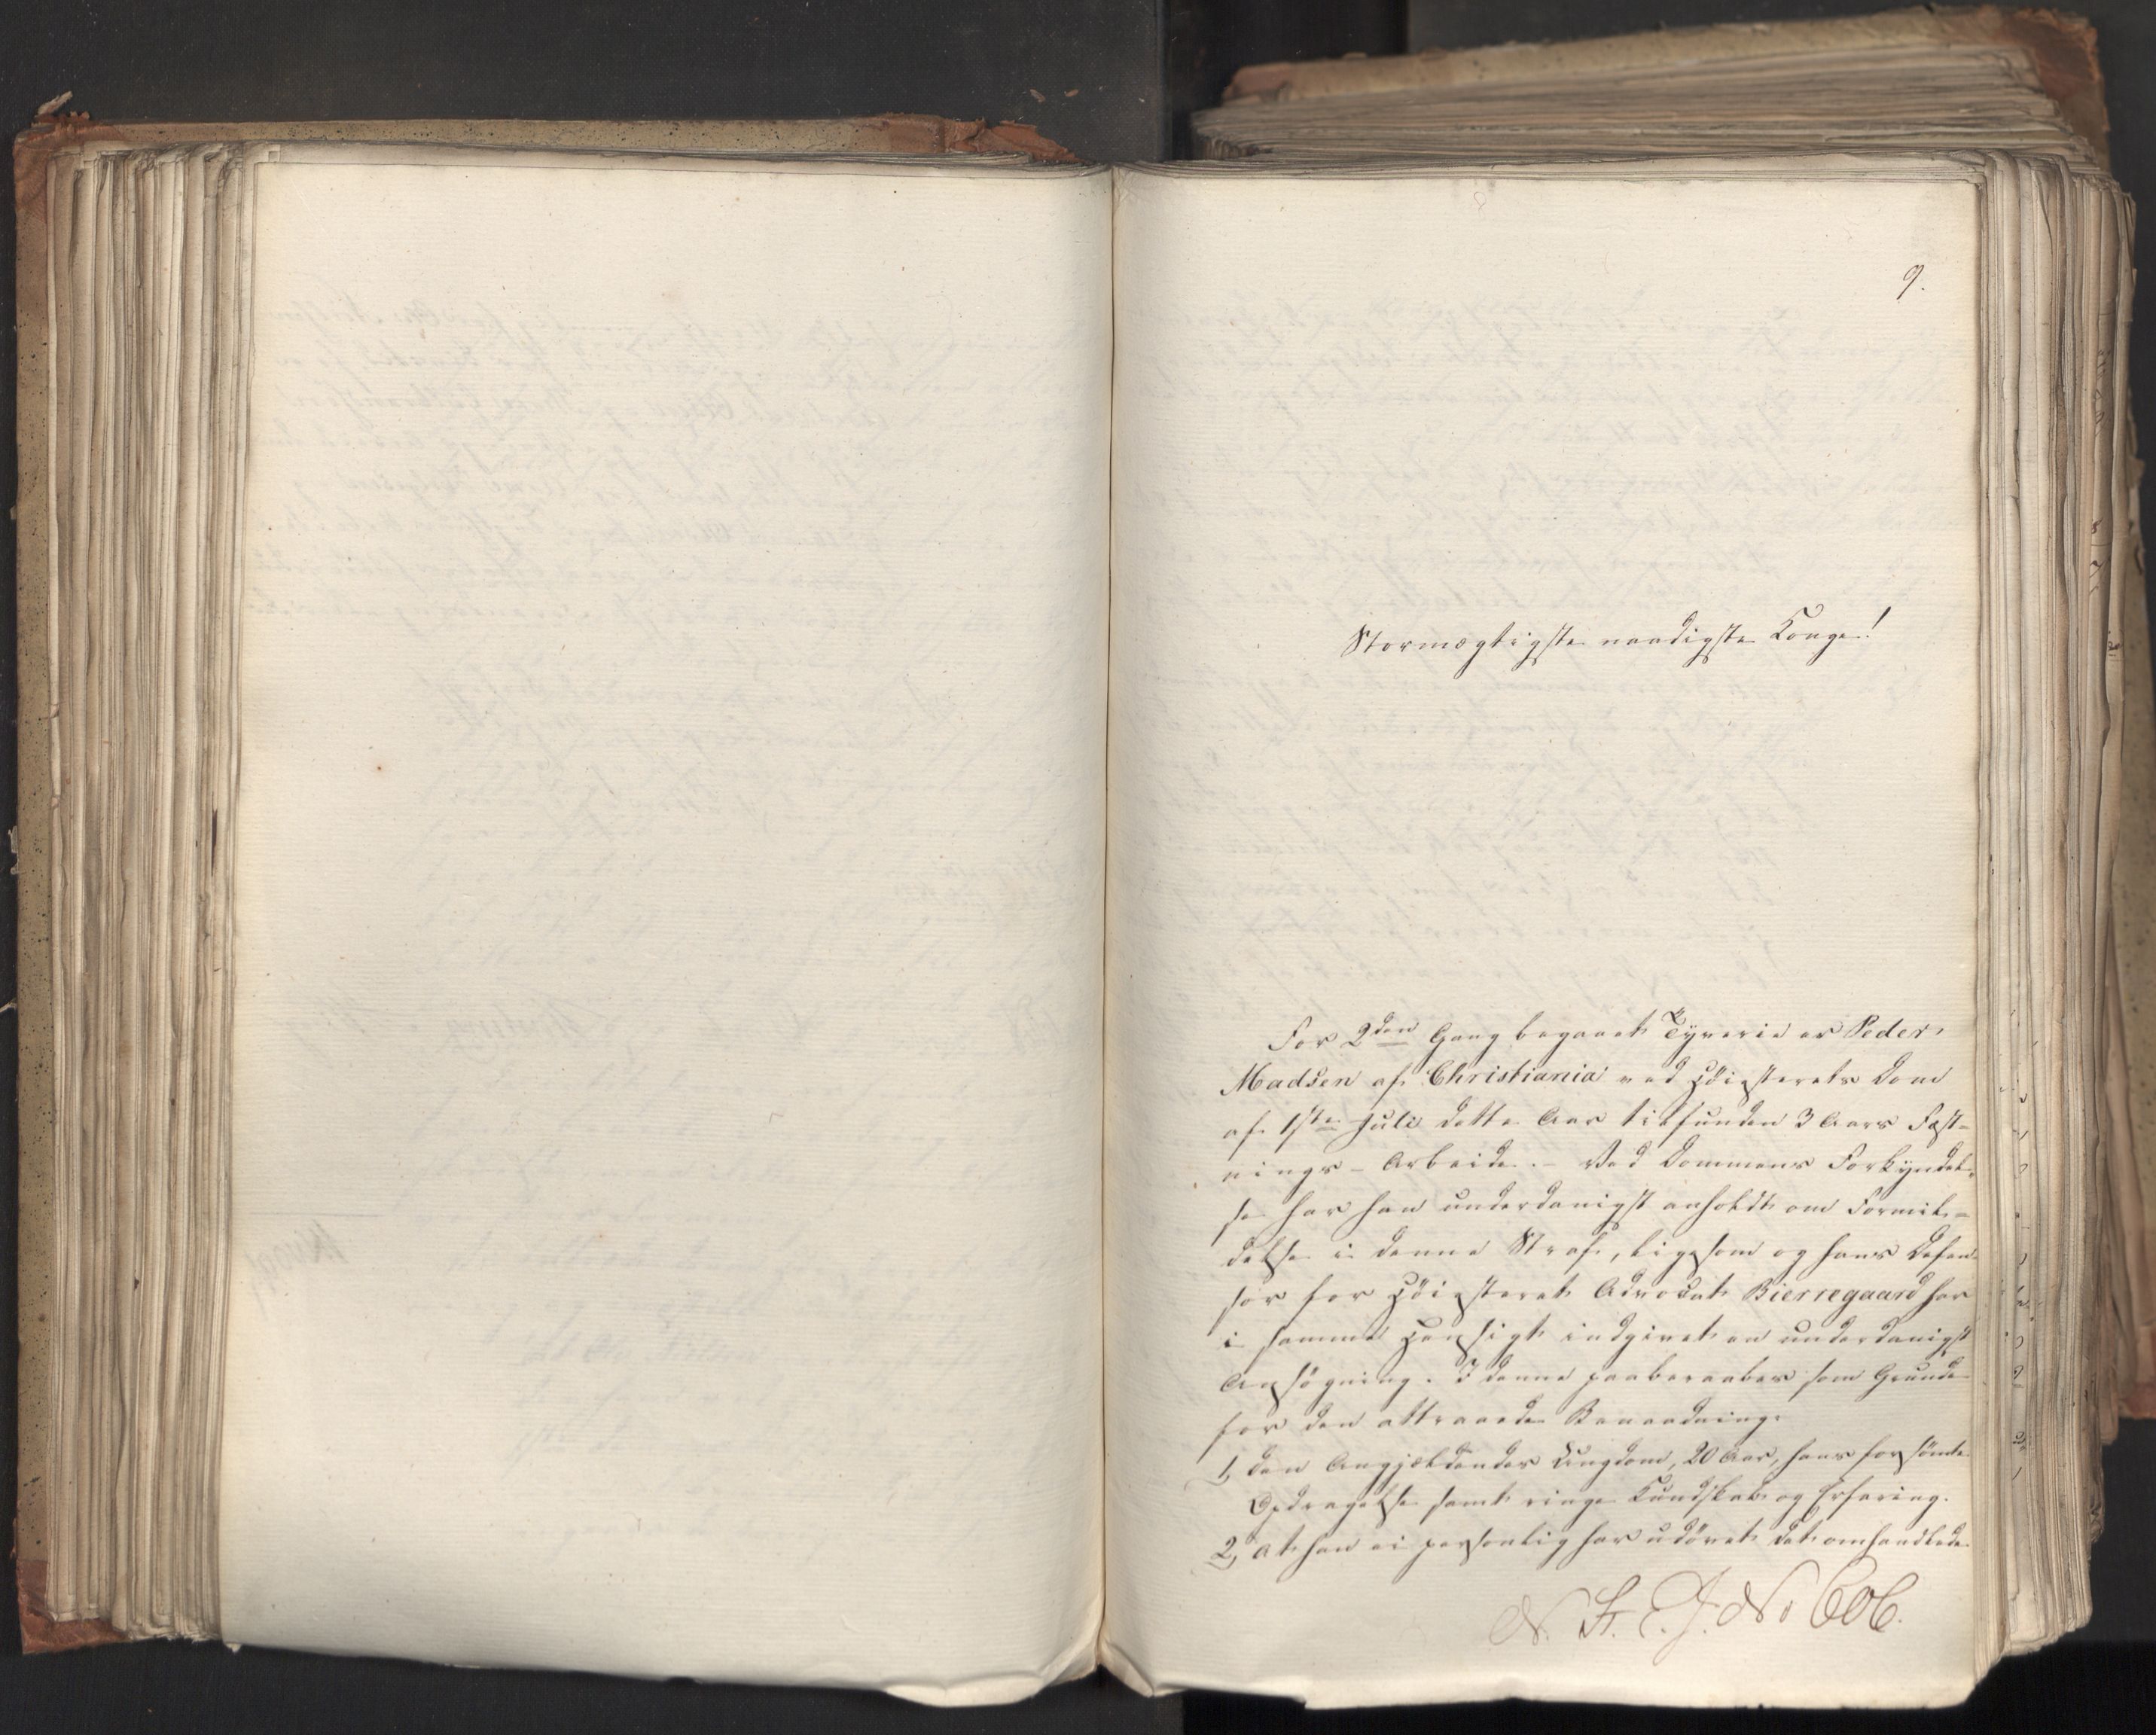 9.
Stormægtigste naadigste Konge!
For 2den Gang begaaet Tyverie er Peder
Madsen af Christiania ved Höiesterets Dom
af 1ste Juli dette Aar tilfunden 3 Aars Fæst-
nings-Arbeide. - Ved Dommens Forkyndel-
se har han underdanigst anholdt om Formil-
delse i denne Straf, ligesom og hans Defen-
sor for Höiesteret Advocat Bierregaard har
i samme Hensigt indgivet en underdanigst
Ansögning. I denne paaberaabes som Grunde
for den attraaede Benaadning:
1, den Angjeldendes Ungdom, 20 Aar, hans forsömte
Opdragelse samt ringe Kundskab og Erfaring.
2, at han ei personlig har udövet det omhandlede
N. St. E. J. No 606.